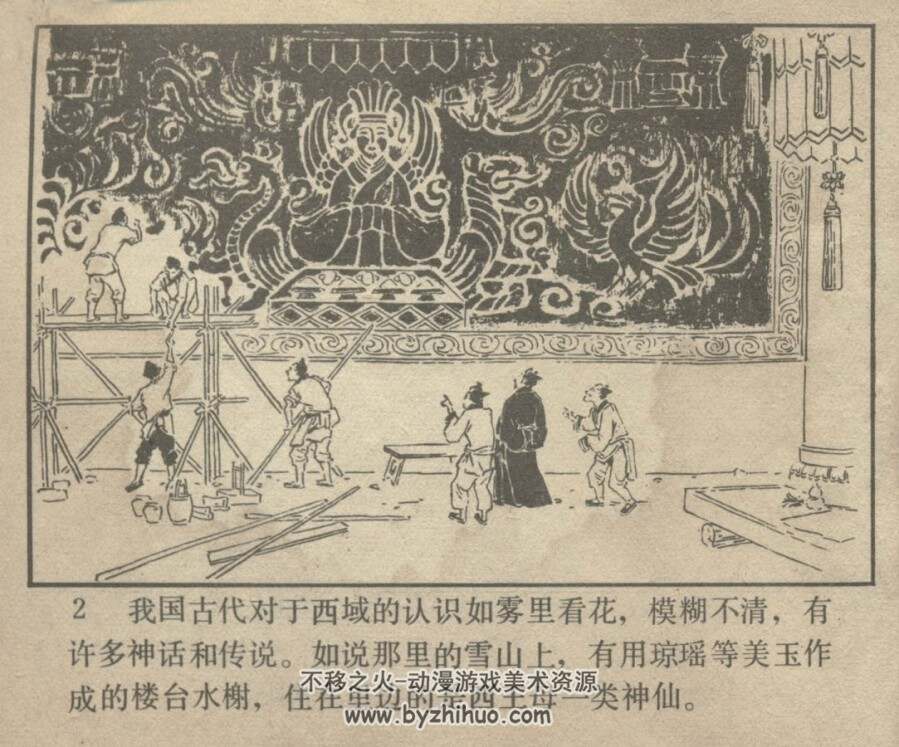 2 我国古代对于西域的认识如雾里看花，模糊不清，有
许多神话和传说。如说那里的雪山上，有用琼瑶等美玉作
成的楼台水榭，住在里边的是西王母一类神仙。
不移之火-动漫游戏美术资源
www.byzhihuo.com